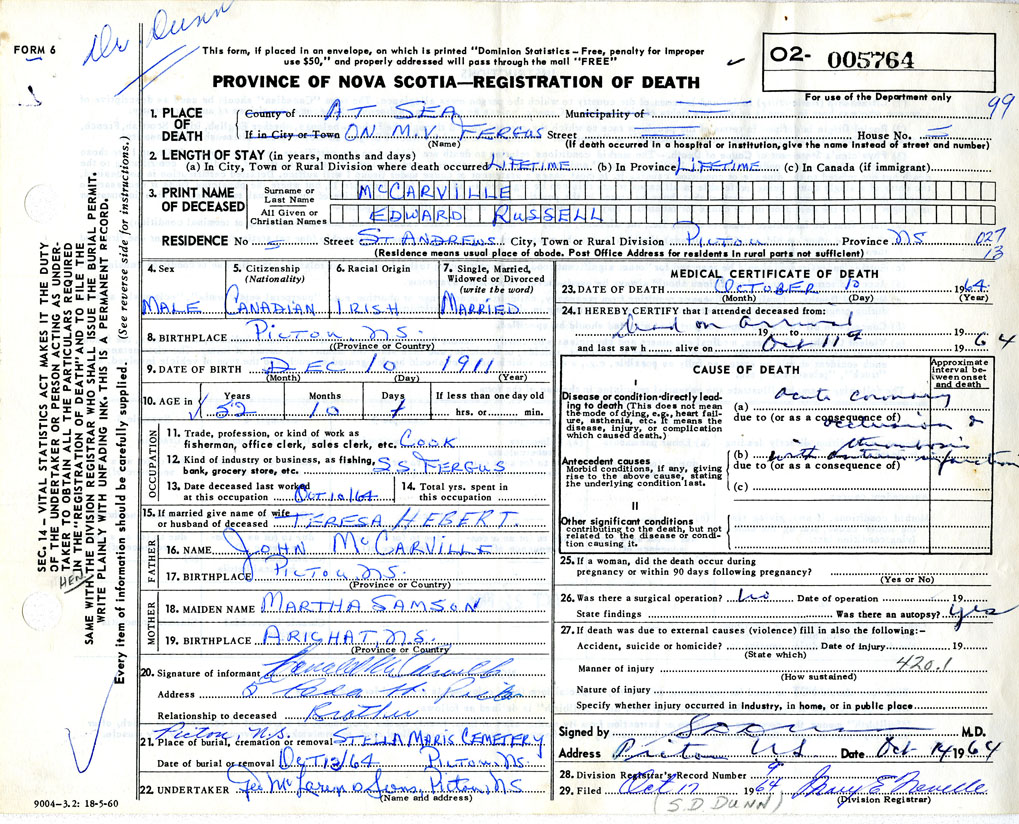 FORM 6
Dr Dunn
This form, if placed in an envelope, on which is printed "Dominion Statistics – Free, penalty for improper
use $50," and properly addressed will pass through the mail "FREE"
PROVINCE OF NOVA SCOTIA—REGISTRATION OF DEATH
02- 005764
For use of the Department only
99
1. PLACE OF DEATH County of AT SEA Municipality of
If in City or Town ON M.V. FERGUS Street House No.
(Name) (If death occurred in a hospital or institution, give the name instead of street and number)
2. LENGTH OF STAY (in years, months and days)
(a) In City, Town or Rural Division where death occurred LIFETIME (b) In Province LIFETIME (c) In Canada (if immigrant)
3. PRINT NAME OF DECEASED Surname or Last Name McCARVILLE
All Given or Christian Names EDWARD RUSSELL
RESIDENCE No 5 Street ST. ANDREWS City, Town or Rural Division PICTOU Province NS 027
13
(Residence means usual place of abode. Post Office Address for residents in rural parts not sufficient)
4. Sex 5. Citizenship (Nationality) 6. Racial Origin 7. Single, Married, Widowed or Divorced (write the word)
MALE CANADIAN IRISH MARRIED
8. BIRTHPLACE PICTOU N.S.
(Province or Country)
9. DATE OF BIRTH DEC 10 1911
(Month) (Day) (Year)
10. AGE in Years Months Days If less than one day old
52 10 hrs. or min.
OCCUPATION
11. Trade, profession, or kind of work as
fisherman, office clerk, sales clerk, etc. COOK
12. Kind of industry or business, as fishing,
bank, grocery store, etc. S.S. FERGUS
13. Date deceased last worked 14. Total yrs. spent in
at this occupation OCT 10/64 this occupation
15. If married give name of wife
or husband of deceased TERESA HEBERT.
FATHER
16. NAME JOHN McCARVILLE
17. BIRTHPLACE PICTOU N.S.
(Province or Country)
MOTHER
18. MAIDEN NAME MARTHA SAMSON
19. BIRTHPLACE ARICHAT N.S.
(Province or Country)
20. Signature of informant
Address
Relationship to deceased Brother
Pictou, N.S.
21. Place of burial, cremation or removal STELLA MARIS CEMETERY
Date of burial or removal OCT 13/64 PICTOU N.S.
22. UNDERTAKER & Sons, Pictou, NS
(Name and address)
9004-3.2: 18-5-60
MEDICAL CERTIFICATE OF DEATH
23. DATE OF DEATH OCTOBER 10 1964
(Month) (Day) (Year)
24. I HEREBY CERTIFY that I attended deceased from:
Dead on arrival
19 to 19
and last saw h alive on Oct 11 19 64
CAUSE OF DEATH
Approximate interval between onset and death
I
Disease or condition directly leading to death (This does not mean the mode of dying, e.g., heart failure, asthenia, etc. It means the disease, injury, or complication which caused death.)
(a) Acute coronary
due to (or as a consequence of) occlusion &
Antecedent causes
Morbid conditions, if any, giving rise to the above cause, stating the underlying condition last.
(b) thrombosis
with infarction
due to (or as a consequence of)
(c)
II
Other significant conditions
contributing to the death, but not related to the disease or condition causing it.
25. If a woman, did the death occur during
pregnancy or within 90 days following pregnancy?
(Yes or No)
26. Was there a surgical operation? No Date of operation 19
State findings Was there an autopsy? Yes
27. If death was due to external causes (violence) fill in also the following:–
Accident, suicide or homicide? Date of injury 19
(State which)
Manner of injury 420.1
(How sustained)
Nature of injury
Specify whether injury occurred in industry, in home, or in public place
Signed by S D Dunn M.D.
Address Pictou NS Date Oct 14 1964
28. Division Registrar's Record Number 9
29. Filed Oct 17 1964 Mary E
(S.D. DUNN) (Division Registrar)
SEC. 14 – VITAL STATISTICS ACT MAKES IT THE DUTY
OF THE UNDERTAKER OR PERSON ACTING AS UNDER-
TAKER TO OBTAIN ALL THE PARTICULARS REQUIRED
IN THE "REGISTRATION OF DEATH" AND TO FILE THE
SAME WITH THE DIVISION REGISTRAR WHO SHALL ISSUE THE BURIAL PERMIT.
WRITE PLAINLY WITH UNFADING INK. THIS IS A PERMANENT RECORD.
Every item of information should be carefully supplied. (See reverse side for instructions.)